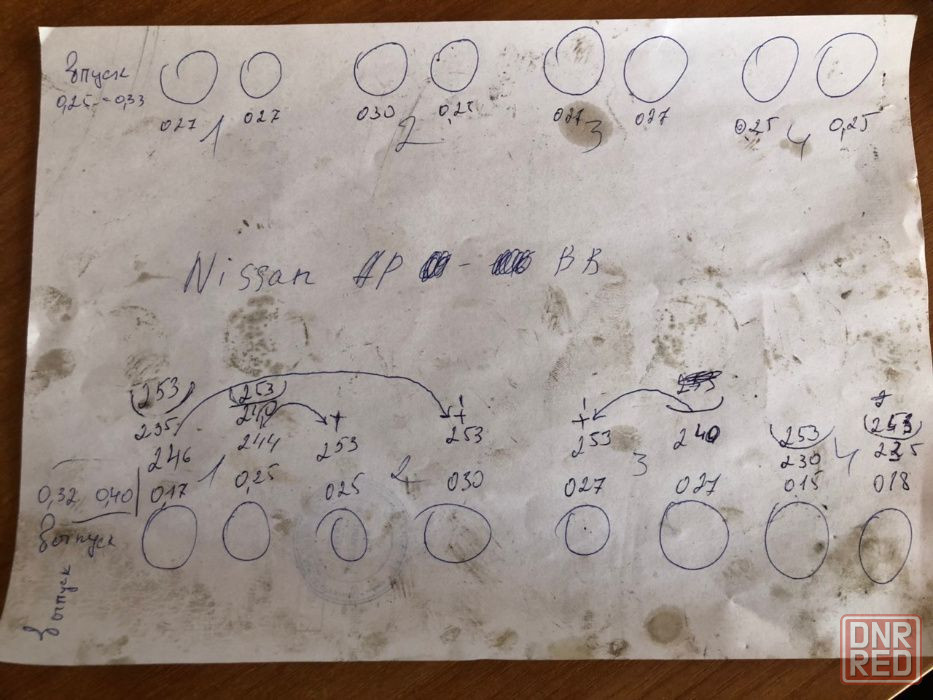 Впуск
0,25 - 0,33
027 027 030 0,25 027 027 025 0,25
1 2 3 4
Nissan BB
(253) (253)
235 240 + + +
246 244 253 253 253 240 (253) (253)
1 2 3 230 4 235
0,32 0,40 0,17 0,25 025 030 027 027 015 018
Выпуск
Выпуск
DNR
RED